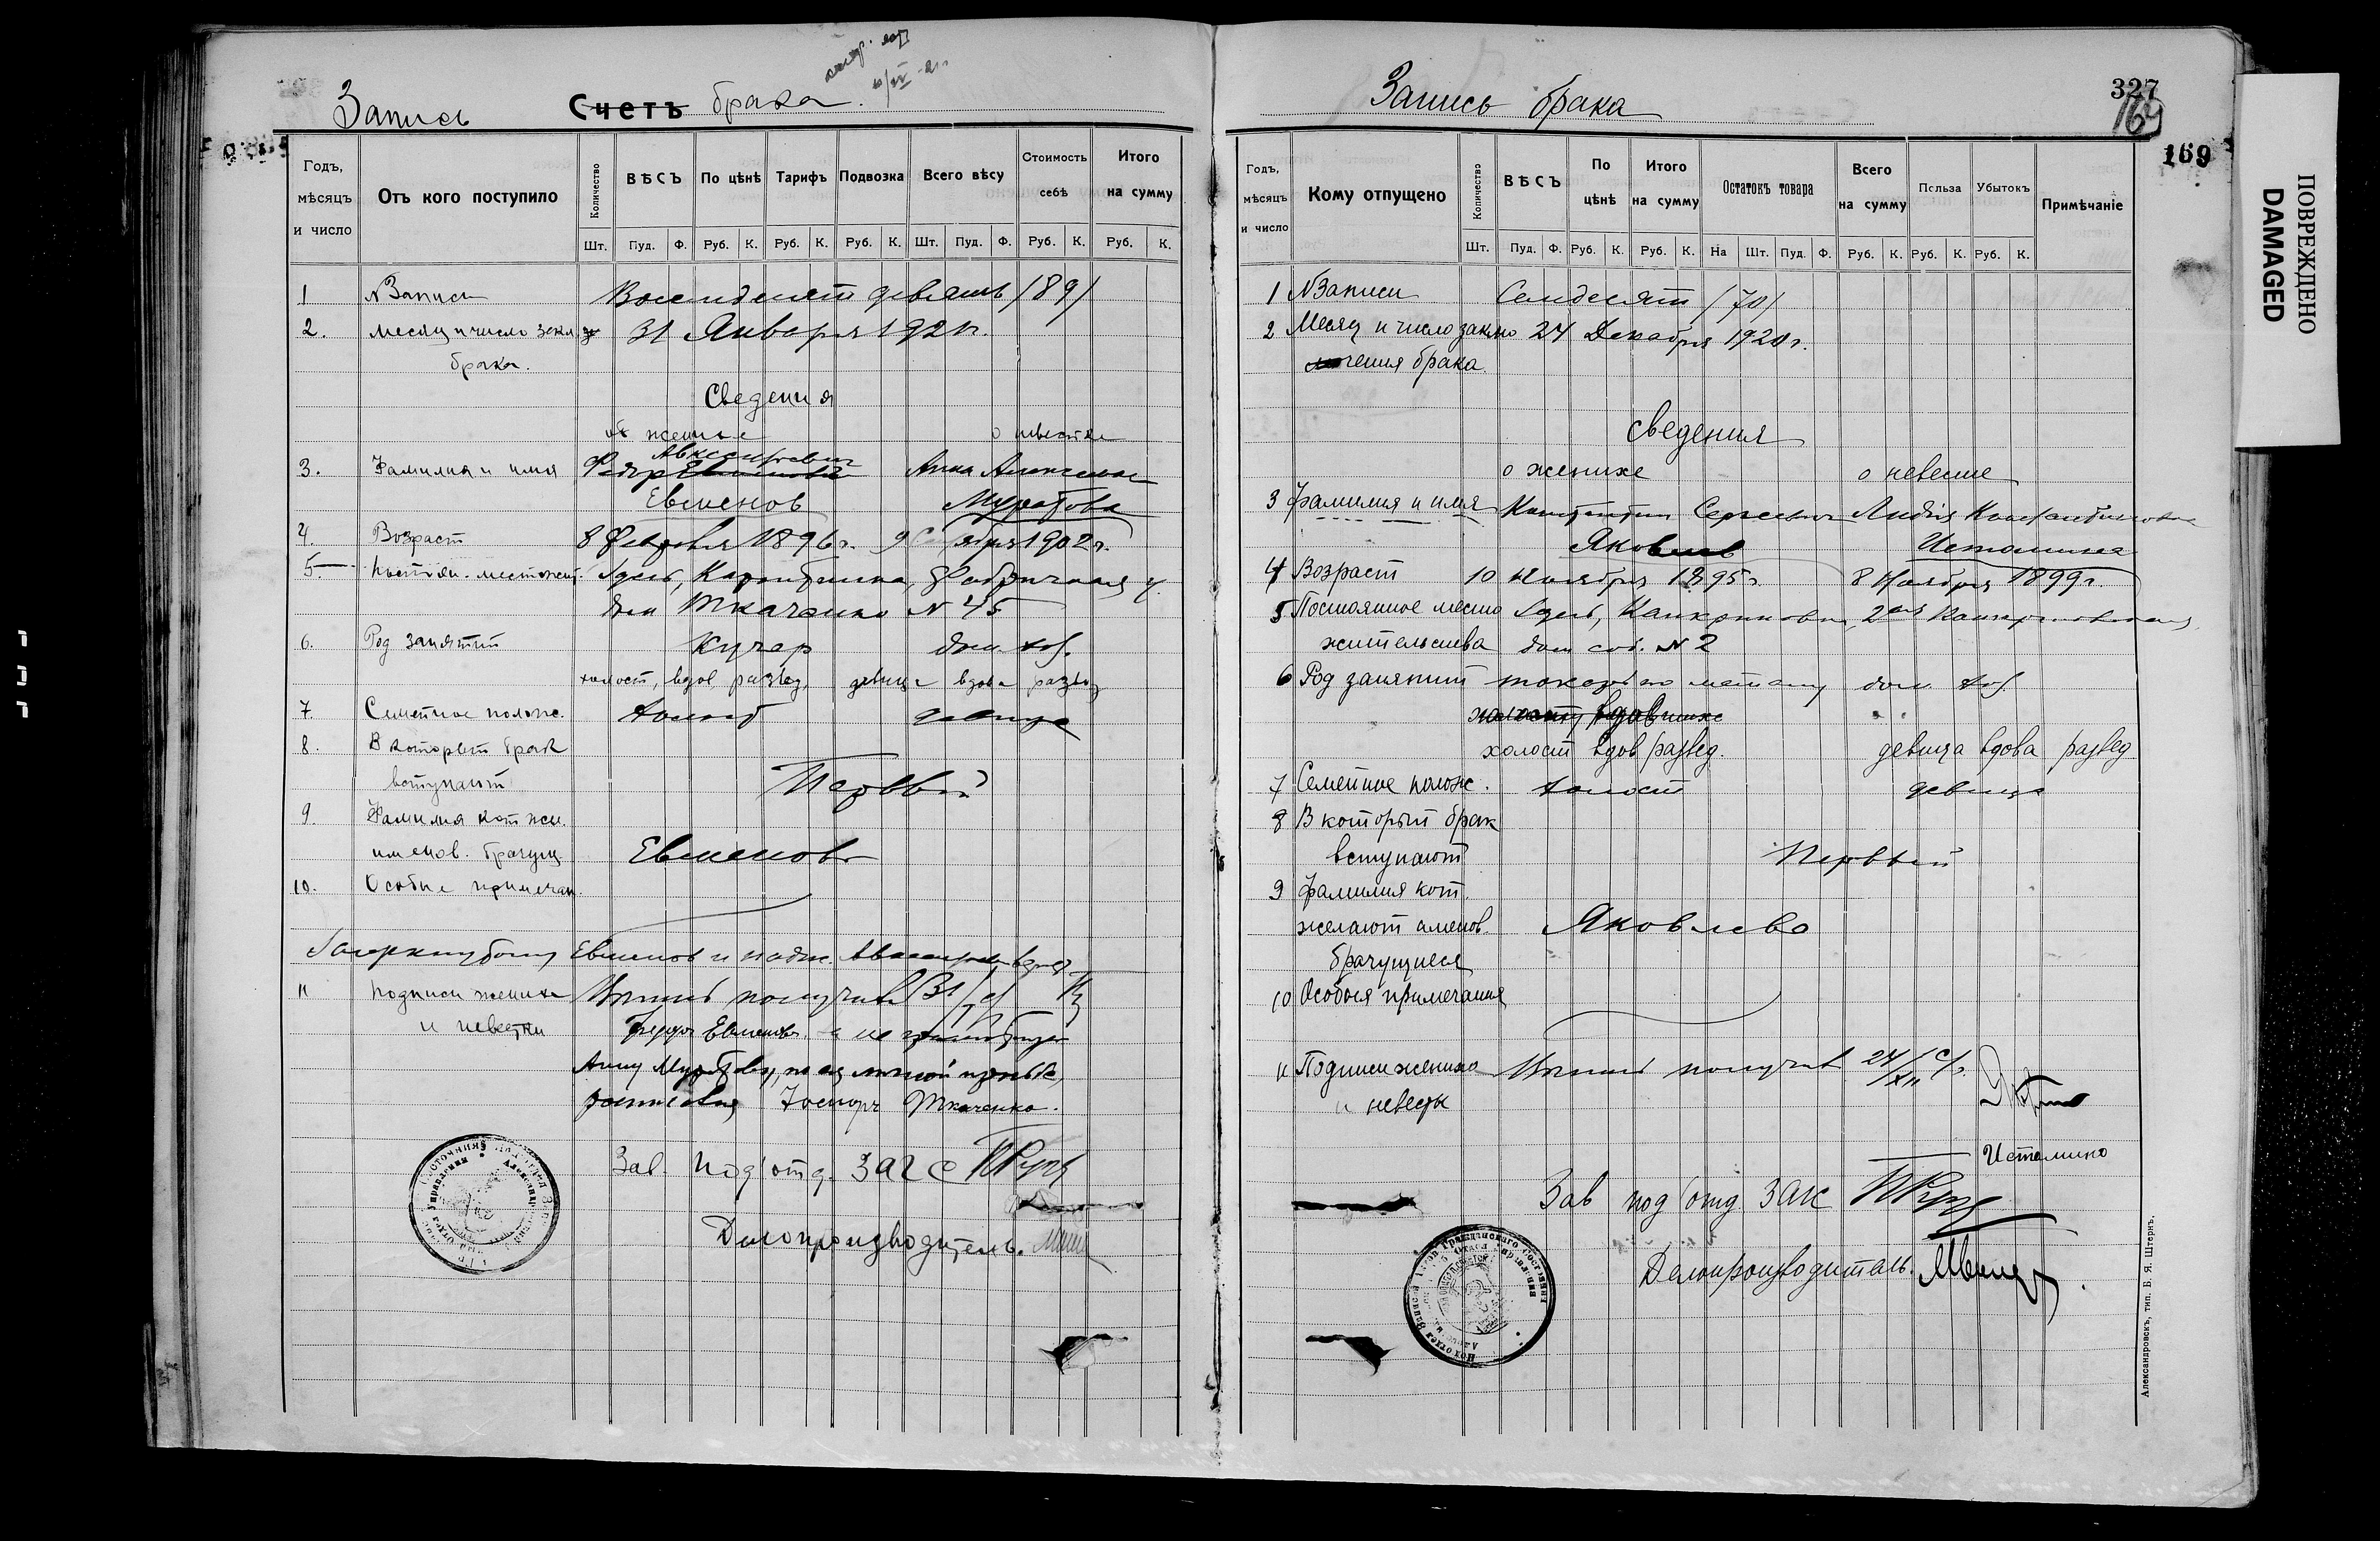 Запись Счетъ брака.
Годъ, мѣсяцъ и число
Отъ кого поступило
Количество
ВѢСЪ
По цѣнѣ
Тарифъ
Подвозка
Всего вѣсу
Стоимость себѣ
Итого на сумму
Шт. Пуд. Ф. Руб. К. Руб. К. Руб. К. Шт. Пуд. Ф. Руб. К. Руб. К.
1 № Записи Восемдесят девять /89/
2. месяц и число закл. 31 Января 1921 г.
брака.
Сведения
об женихе о невесте
3. Фамилия и имя Федор Анна
Евменов Муратова
4. Возраст 8 Февраля 1896 г. 9 1902 г.
5. здесь, Фабричная у.
дом Ткаченко № 45
6. Род занятий Кучер дом. хоз.
холост, вдов развед. девица вдова развед
7. Семейное полож. холост девица
8. В который брак
вступают Первый
9. Фамилия кот жел.
именов. брачущ. Евменов
10. Особые примечан.
Зачеркнутому Евменов и надп. верить
11 подписи жениха получил 31/I
и невесты Федор Евменов а за неграмотную
Анну Муратову, по ея личной просьбе,
росписался Ткаченко.
Зав. подотд. ЗАГС
Делопроизводитель.
Запись брака
327
169
169
Годъ, мѣсяцъ и число
Кому отпущено
Количество
ВѢСЪ
По цѣнѣ
Итого на сумму
Остатокъ товара
Всего на сумму
Польза
Убытокъ
Примѣчаніе
Шт. Пуд. Ф. Руб. К. Руб. К. На Шт. Пуд. Ф. Руб. К. Руб. К. Руб. К.
1 № Записи Семдесят /70/
2 Месяц и число заклю 24 Декабря 1920 г.
чения брака
Сведения
о женихе о невесте
3 Фамилия и имя Константин Сергеевич Лидия Константиновна
Яковлев Истомина
4 Возраст 10 Ноября 1895 г. 8 Ноября 1899 г.
5 Постоянное место здесь, 2ая
жительства дом соб. № 2
6 Род занятий токарь по металу дом. хоз.
холост вдов развед. девица вдова развед
7 Семейное полож. холост девица
8 В который брак
вступают Первый
9 Фамилия кот.
желают именов. Яковлевы
брачущиеся
10 Особыя примечания
11 Подписи жениха получил 24/XII с/г.
и невесты
Истомина
Зав подотд. ЗАГС
Делопроизводитель.
Александровскъ, тип. Б. Я. Штернъ.
ПОВРЕЖДЕНО
DAMAGED